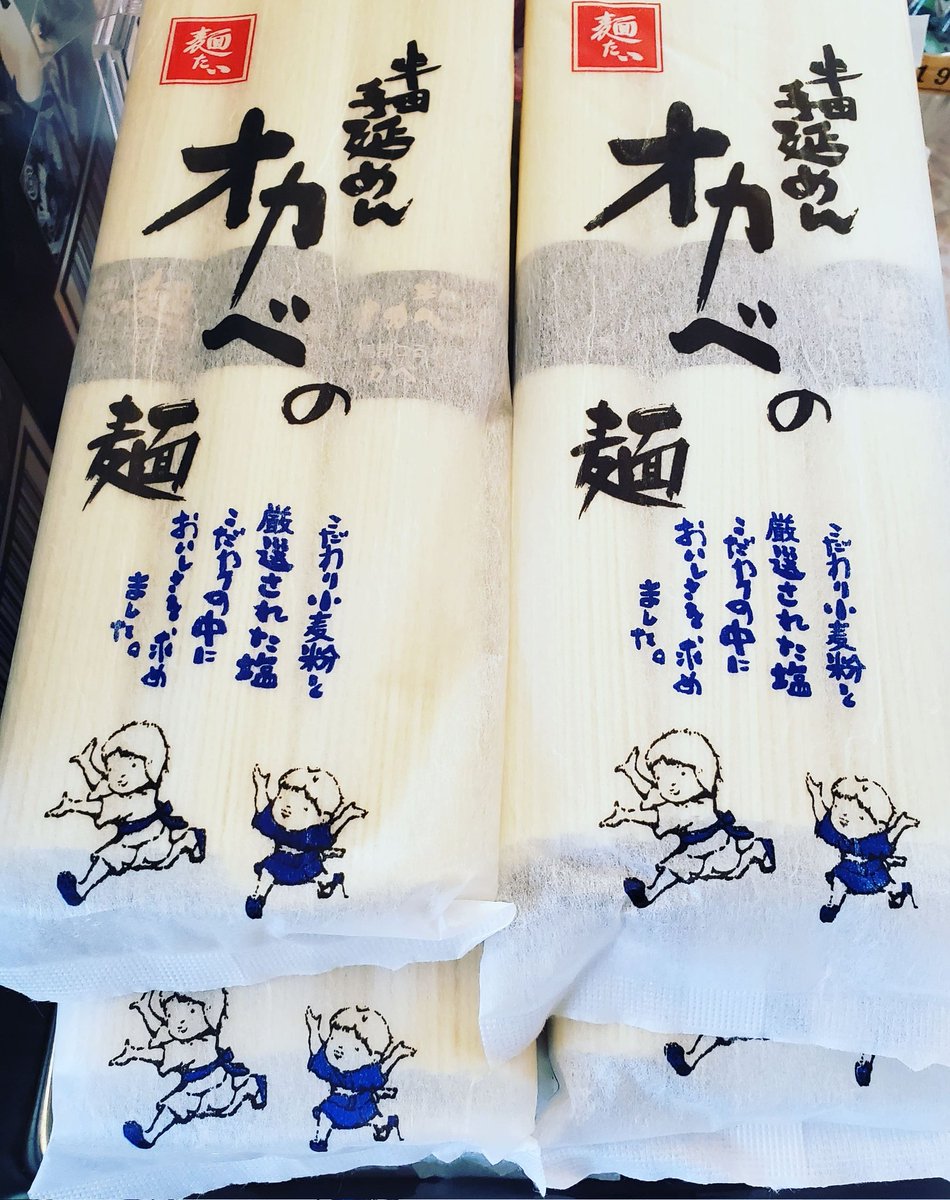 麺たい
半田
手延めん
オカベの
麺
こだわり小麦粉と
厳選された塩
こだわりの中に
おいしさを求め
ました。
麺たい
半田
手延めん
オカベの
麺
こだわり小麦粉と
厳選された塩
こだわりの中に
おいしさを求め
ました。
19